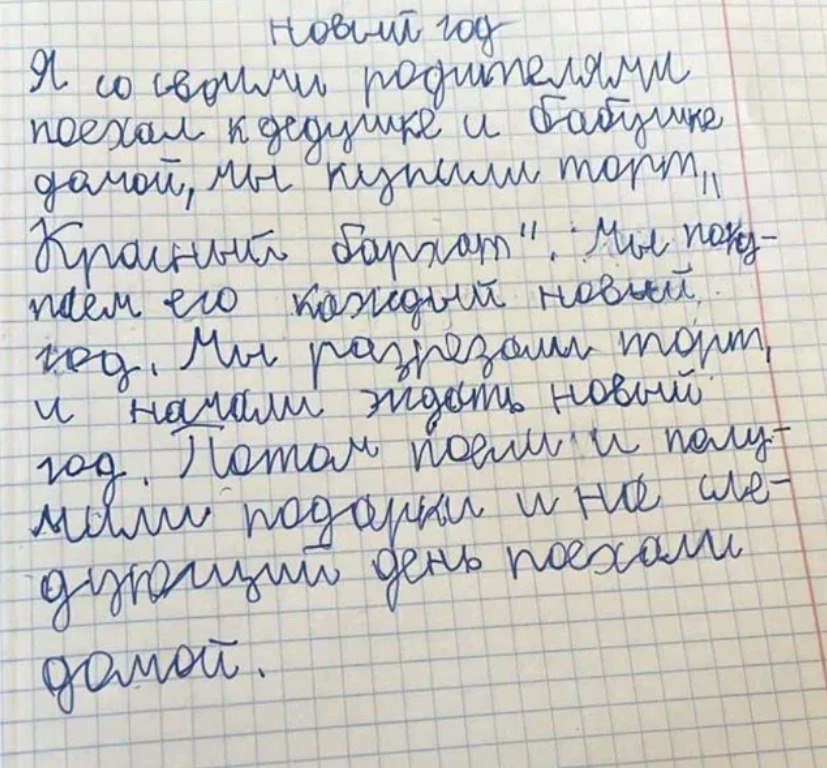 новый год
Я со своими родителями
поехал к дедушке и бабушке
домой, мы купили торт „
Красный бархат“. Мы поку-
паем его каждый новый
год. Мы разрезали торт,
и начали ждать новый
год. Потом поели и полу-
чили подарки и на сле-
дующий день поехали
домой.